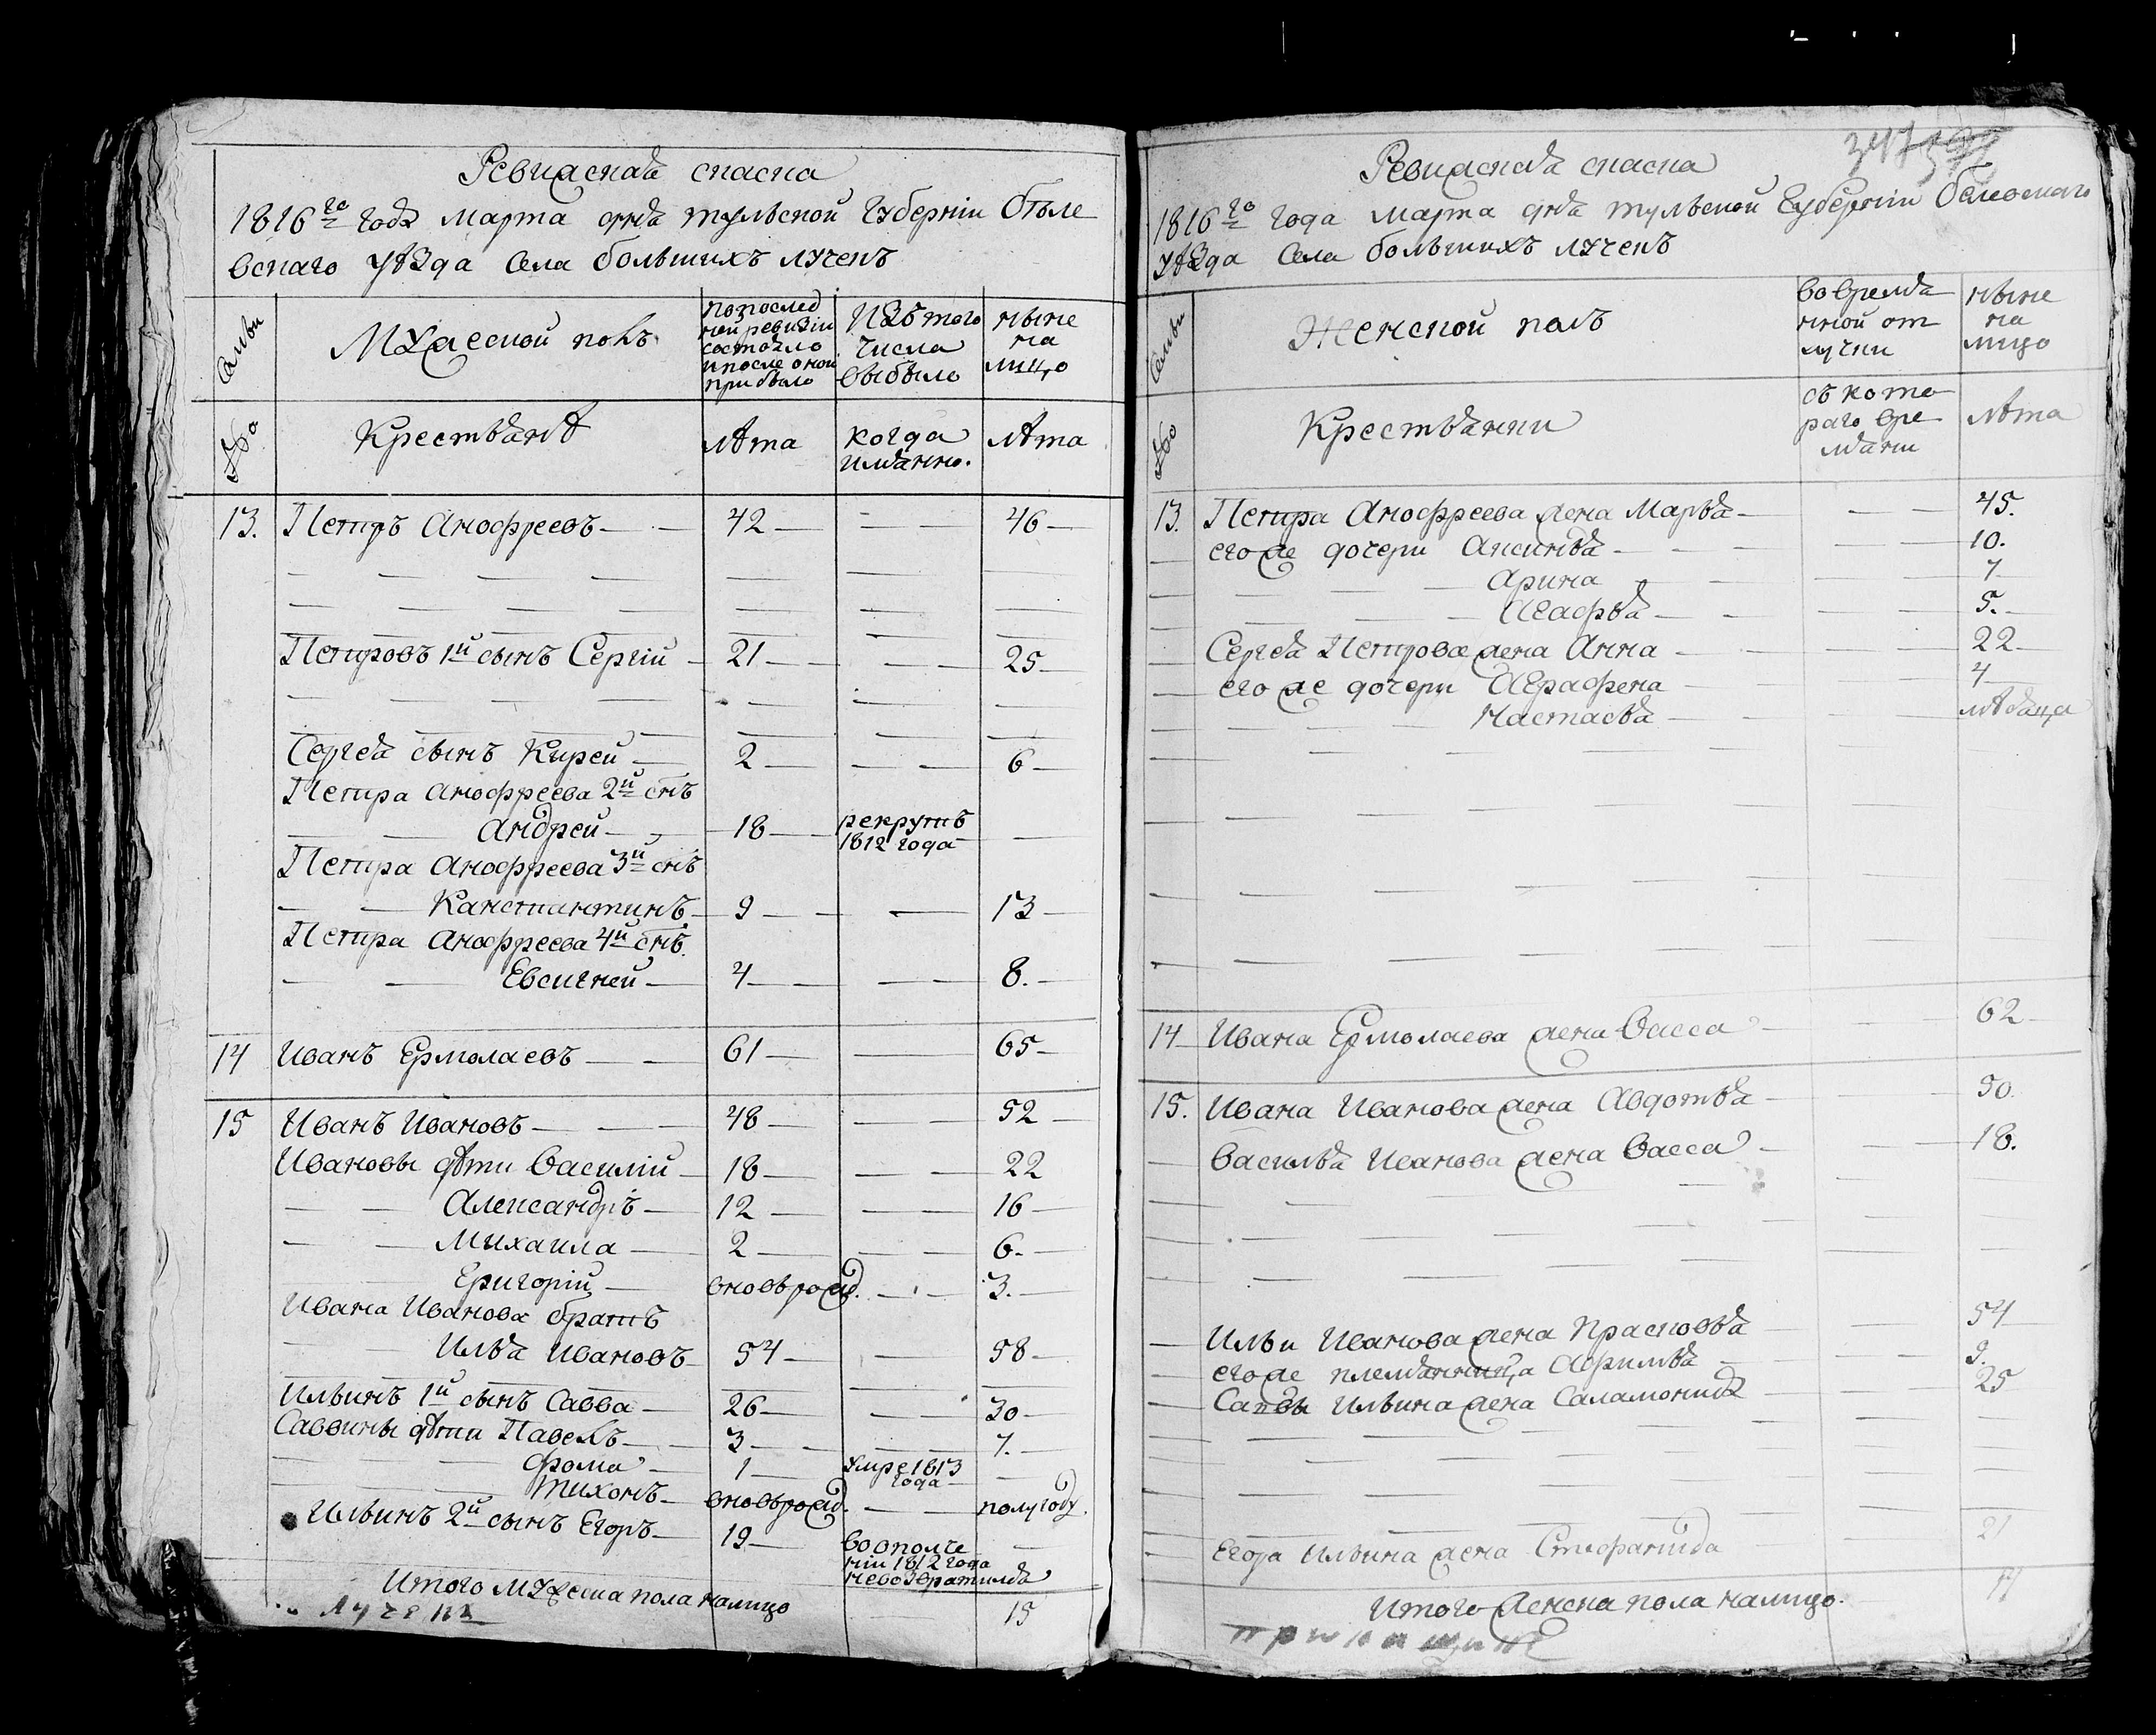 Ревизская сказка
1816го года марта дня тульской губернии Бѣле
вскаго уѣзда Села большихъ лученъ
Семьи
Мужеской полъ
по послед
ней ревизіи
состояло
и после оной
прибыло
Изъ того
числа
выбыло
ныне
на
лицо
№
Крестьянѣ
лѣта
когда
имянно.
лѣта
13. Петръ Анофреевъ 42 46
Петровъ 1й сынъ Сергій 21 25
Сергея сынъ Кирей 2 6
Петра Анофреева 2й снъ
Андрей 18 рекрутъ
1812 года
Петра Анофреева 3й снъ
Канстантинъ 9 13
Петра Анофреева 4й снъ.
Евсигней 4 8.
14 Иванъ Ермолаевъ 61 65
15 Иванъ Ивановъ 48 52
Ивановы дѣти Василій 18 22
Александръ 12 16
Михаила 2 6.
Григорій вновьрожд. 3.
Ивана Иванова братъ
Илья Ивановъ 54 58
Ильинъ 1й сынъ Савва 26 30
Саввины дѣти Павелъ 3 7.
Фома 1 умре 1813
года
Тихонъ вновьрожд. полугоду.
Ильинъ 2й сынъ Егоръ 19 во ополче
ніи 1812 года
невозвратился
Итого мужеска пола налицо 15
Ревизская сказка
1816го года марта дня тульской Губерніи белевскаго
уѣзда Села большихъ лученъ
Семьи
Женской полъ
во времян
нной от
лучки
ныне
на
лицо
№
Крестьянки
съ кото
раго вре
мяни
лѣта
13. Петра Анофреева жена Марья 45.
его же дочери Аксинья 10.
Арина 7
Агафья 5.
Сергея Петрова жена Анна 22
его же дочери Аграфена 4
Настасья мѣсяца
14 Ивана Ермолаева жена Васса 62
15. Ивана Иванова жена Авдотья 50.
Василья Иванова жена Васса 18.
Ильи Иванова жена Прасковья 54
его же племянница Афимья 9.
Савы Ильина жена Саламонида 25
Егора Ильина жена Степанида 21
Итого женска пола налицо.